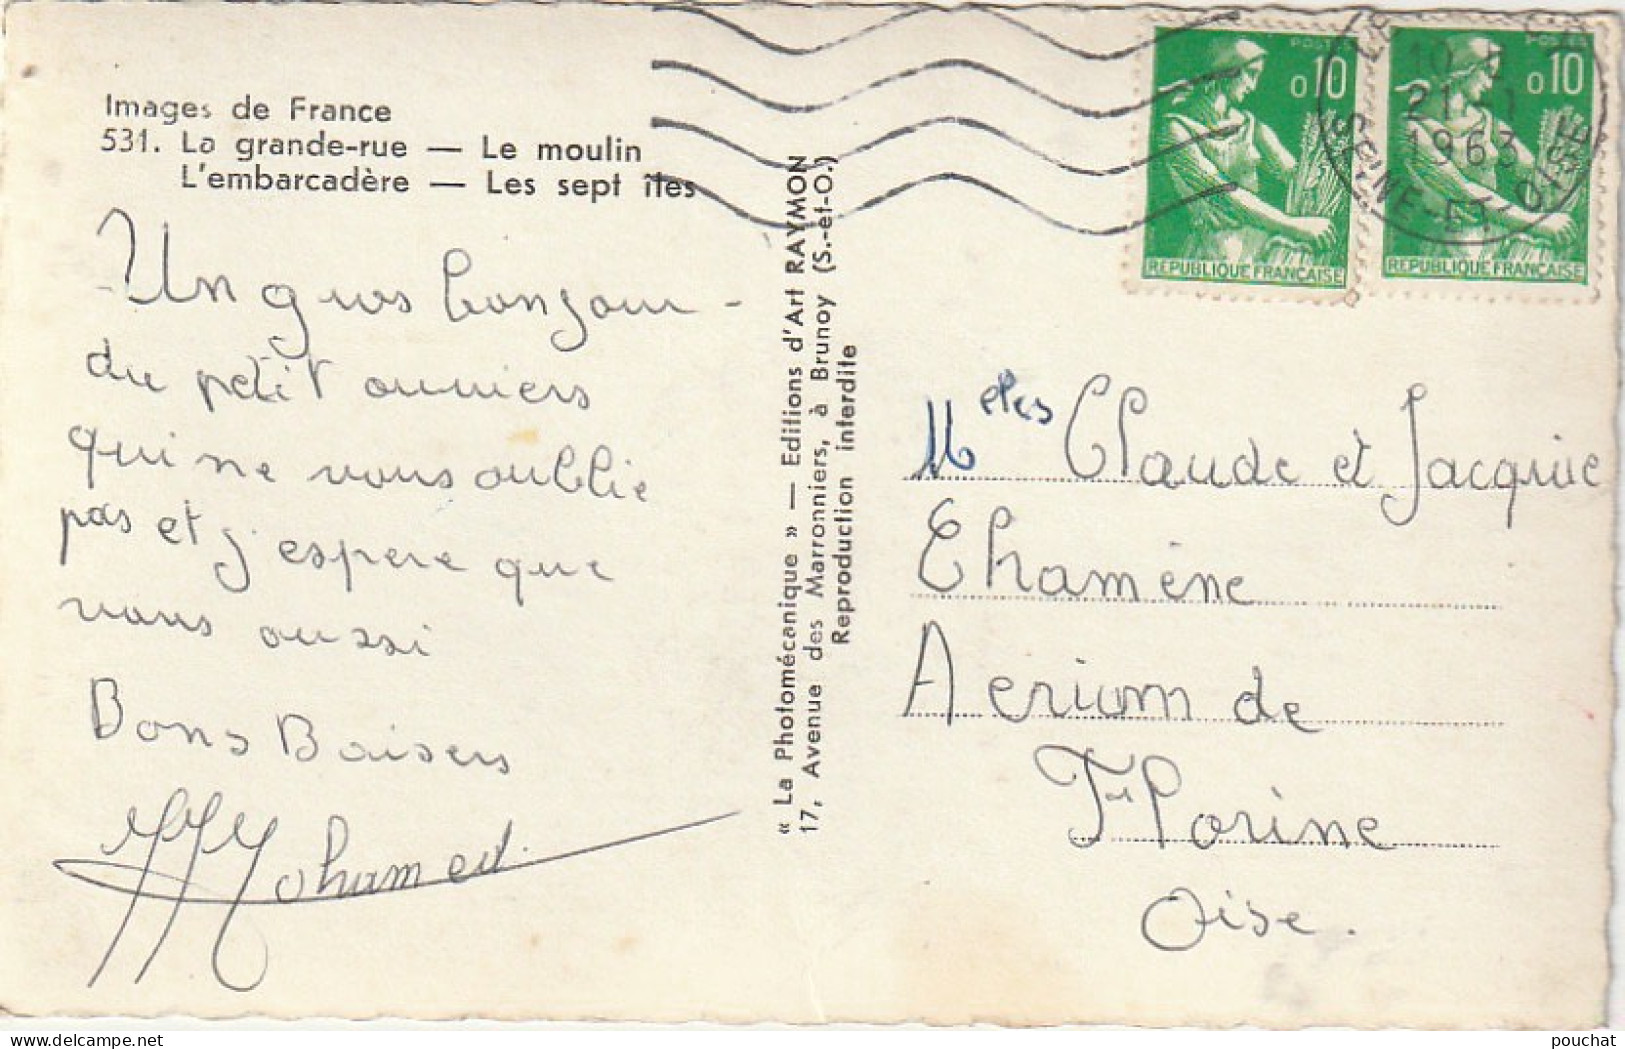 Images de France
531. La grande-rue — Le moulin
L'embarcadère — Les sept îles
- Un gros bonjour -
du petit ouvriers
qui ne vous oublie
pas et j'espere que
vous aussi
Bons Baisers
Mohamed.
« La Photomécanique » — Editions d'Art RAYMON
17, Avenue des Marronniers, à Brunoy (S.-et-O.)
Reproduction interdite
POSTES
0,10
REPUBLIQUE FRANÇAISE
POSTES
0,10
REPUBLIQUE FRANÇAISE
21 -1
1963
SEINE-ET-OISE
Melles Claude et Jacquie
Ehamène
Aerium de
Florine
Oise.
pouchat